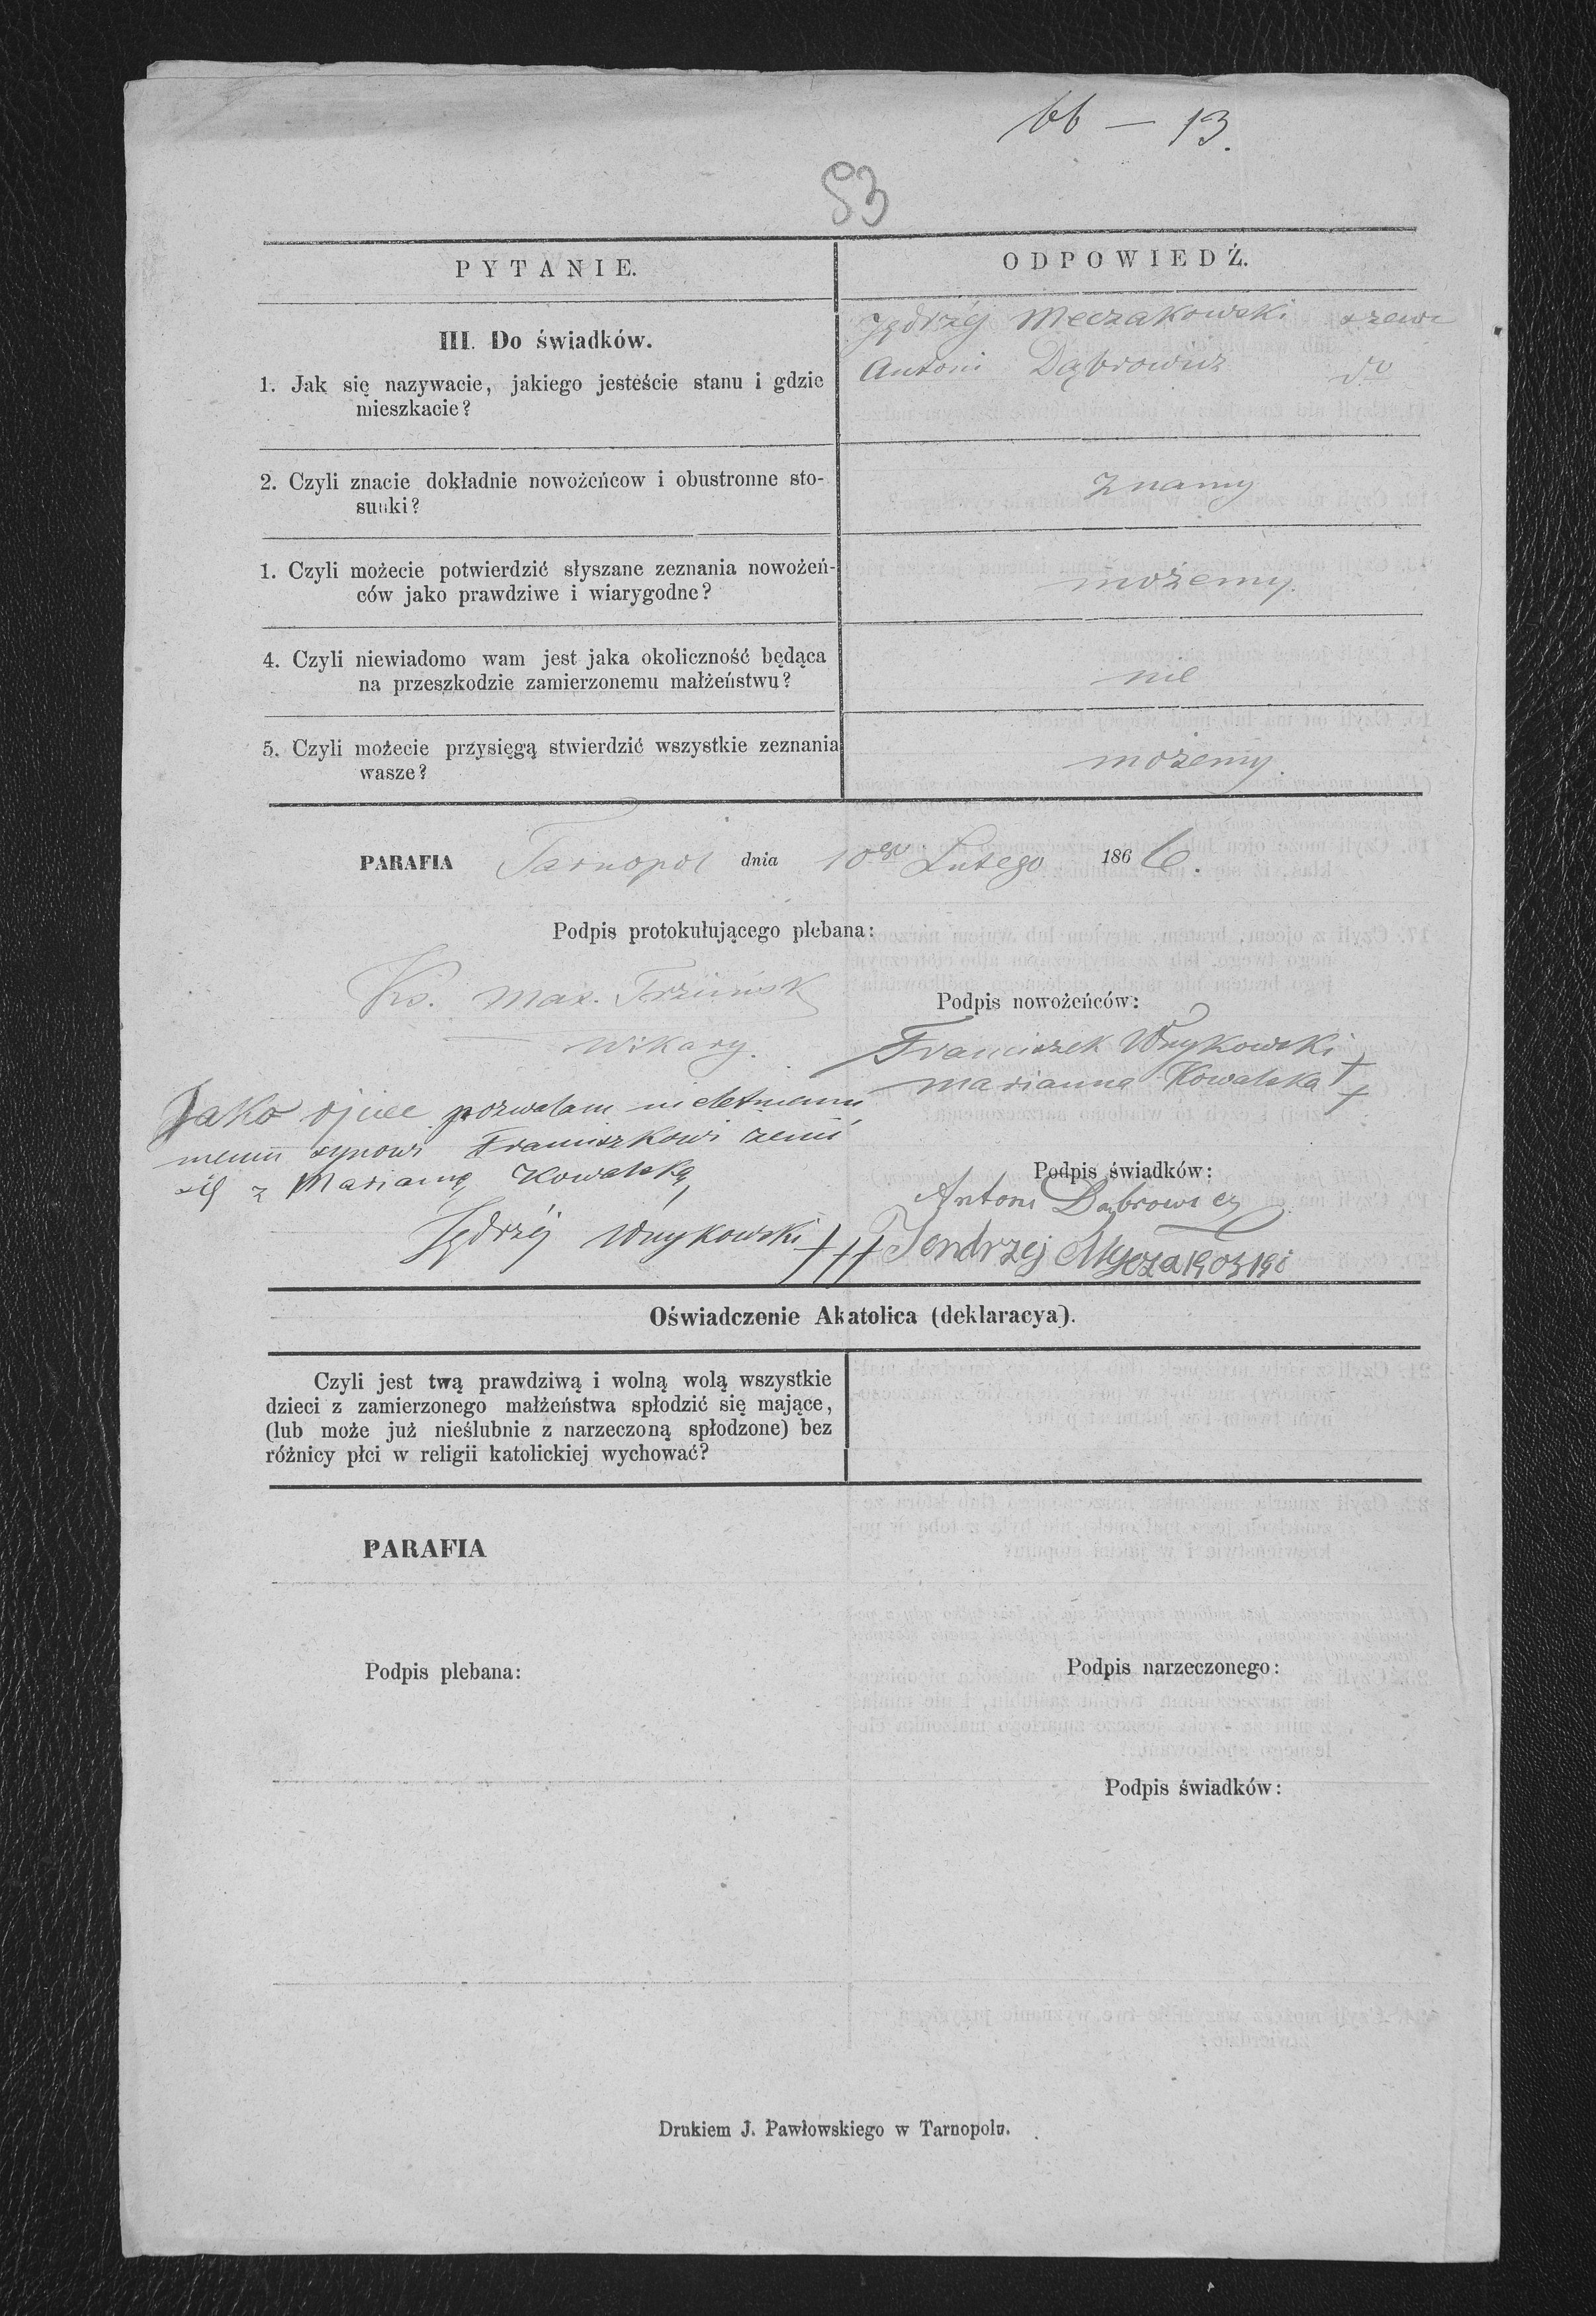 66 — 13.
53
PYTANIE.
ODPOWIEDŹ.
III. Do świadków.
1. Jak się nazywacie, jakiego jesteście stanu i gdzie
mieszkacie?
Jędrzéj Meczakowski szewc
Antoni Dąbrowicz do
2. Czyli znacie dokładnie nowożeńcow i obustronne sto-
sunki?
znamy
1. Czyli możecie potwierdzić słyszane zeznania nowożeń-
ców jako prawdziwe i wiarygodne?
możemy.
4. Czyli niewiadomo wam jest jaka okoliczność będąca
na przeszkodzie zamierzonemu małżeństwu?
nie
5. Czyli możecie przysięgą stwierdzić wszystkie zeznania
wasze?
możemy.
PARAFIA Tarnopol dnia 10go Lutego 1866.
Podpis protokułującego plebana:
Ks. Max.
Wikary.
Podpis nowożeńców:
Franciszek Wnykowski +
Marianna Kowalska +
Jako ojciec pozwalam nieletniemu
memu synowi Franciszkowi żenić
się z Marianną Kowalską
Jędrzéj Wnykowski +++
Podpis świadków:
Antoni Dąbrowicz
Jendrzej
Oświadczenie Akatolica (deklaracya).
Czyli jest twą prawdziwą i wolną wolą wszystkie
dzieci z zamierzonego małżeństwa spłodzić się mające,
(lub może już nieślubnie z narzeczoną spłodzone) bez
różnicy płci w religii katolickiej wychować?
PARAFIA
Podpis plebana:
Podpis narzeczonego:
Podpis świadków:
Drukiem J. Pawłowskiego w Tarnopolu.